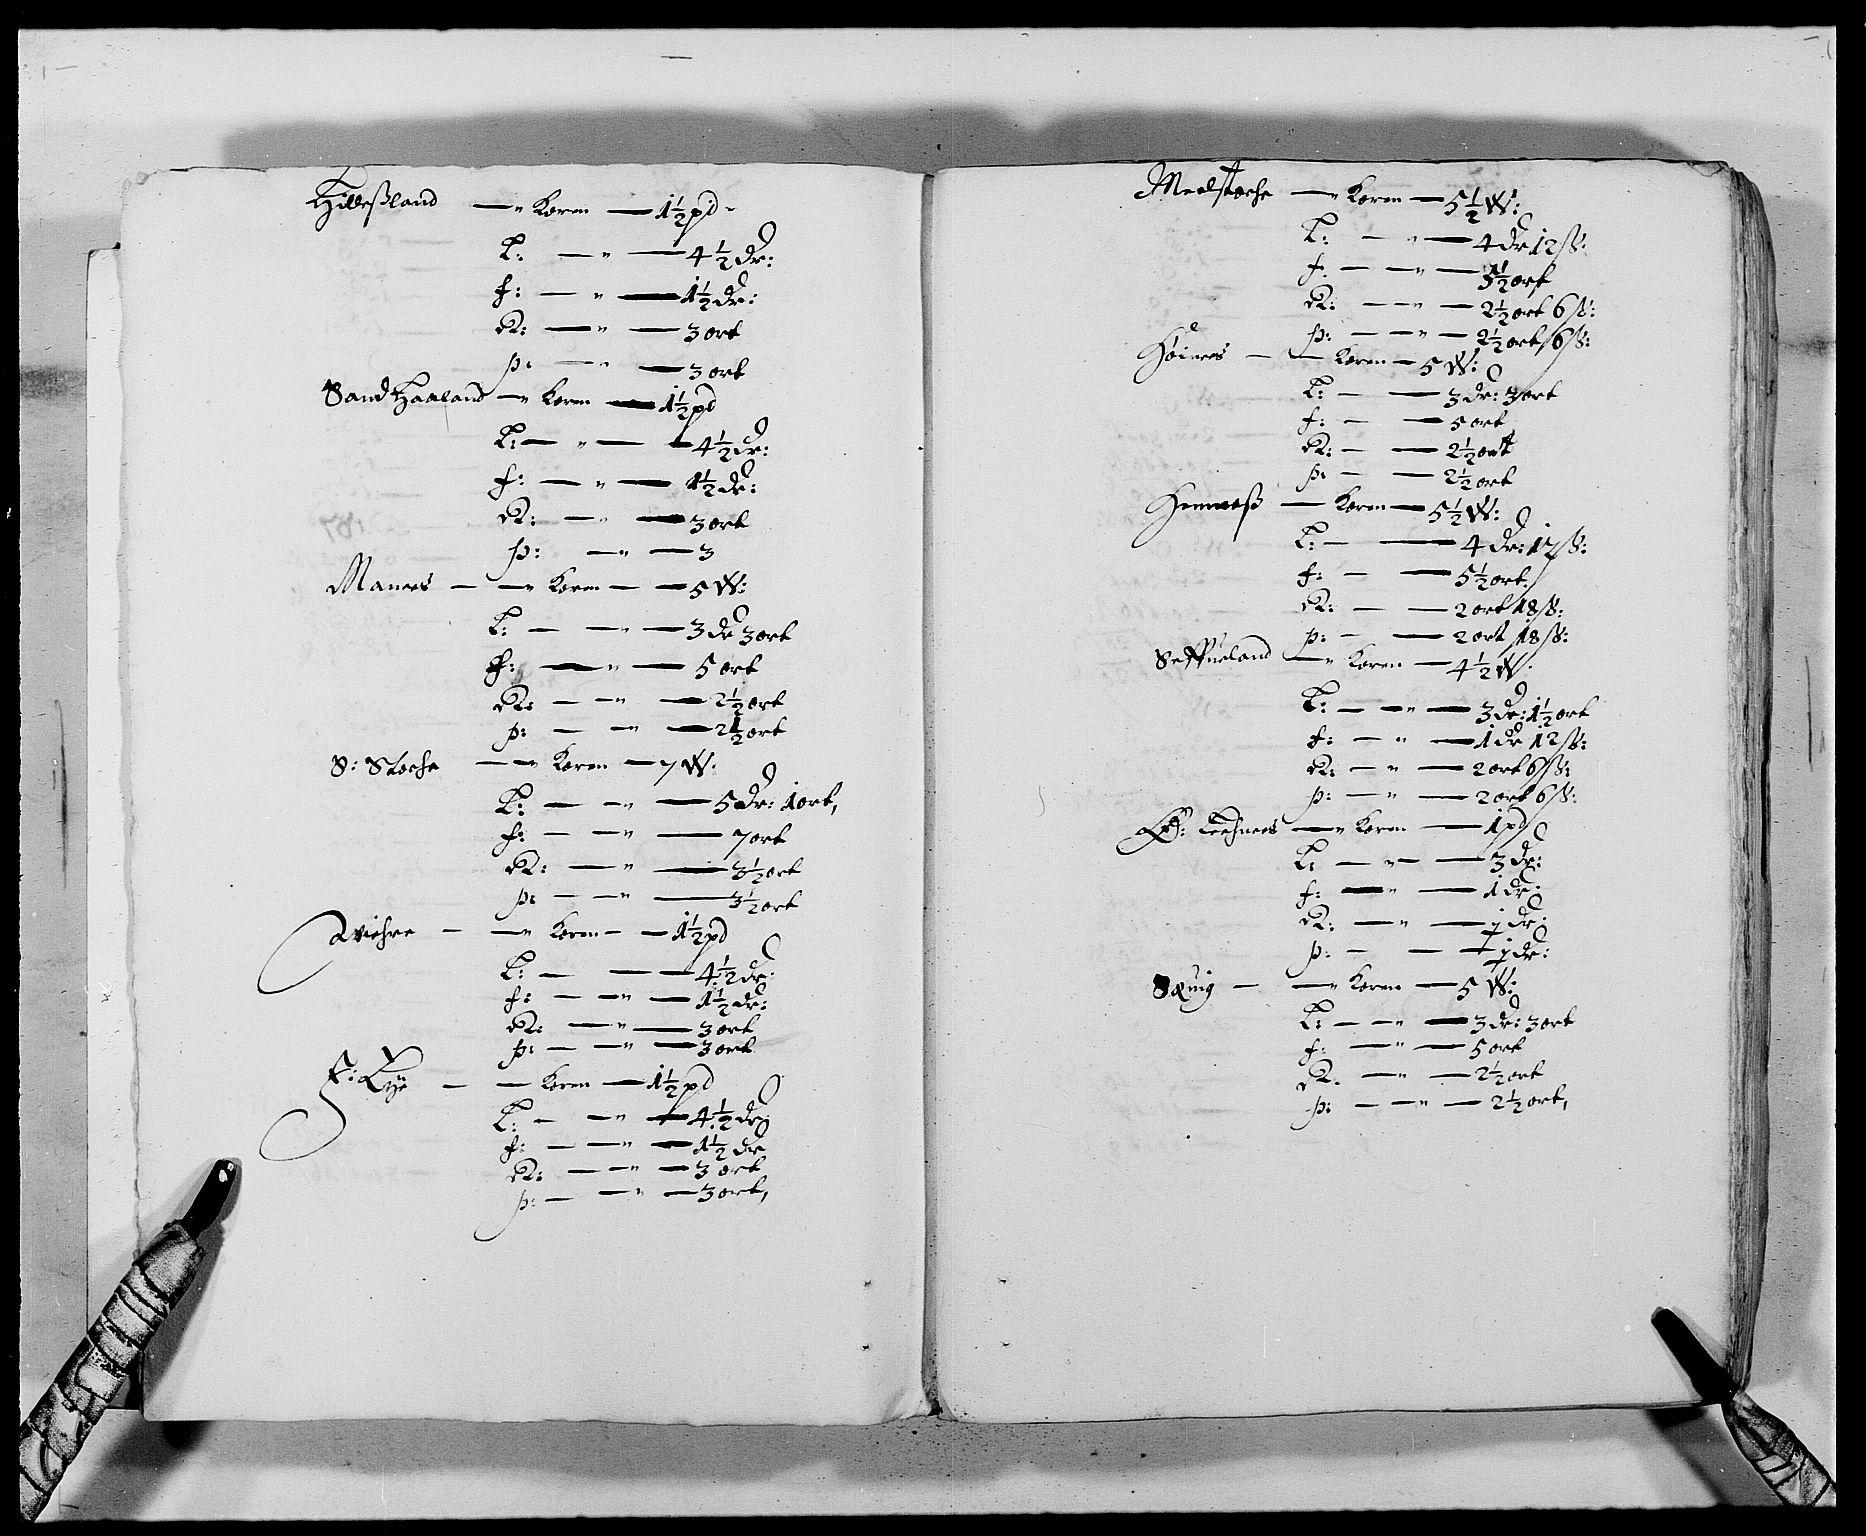 Hilleßland — " Koren — 1½ pd
L: — " — 4½ dr:
f: — " — 1½ dr:
R: — " — 3 ort
p: — " — 3 ort
Sand Haaland — " Koren — 1½ pd
L: — " — 4½ dr:
f: — " — 1½ dr:
R: — " — 3 ort
p: — " — 3
Manees — — " Koren — — 5 W:
L: — — " — 3 dr 3 ort
f: — " — 5 ort
R: — — " — 2½ ort
p: — — " — 2½ ort
S: Stoche — — " Koren — 7 W:
L: — — " — 5 dr: 1 ort,
f: — — " — 7 ort
R: — " — 3½ ort
p: — — " — 3½ ort
Qviehre — — " Koren — — 1½ pd
L: — — — 4½ dr:
f: — — " — 1½ dr:
R: — — " — 3 ort
p: — — " — 3 ort
F: Eye — — Koren — 1½ pd
L: — — " — 4½ dr
f: — — " — 1½ dr
R: — — " — 3 ort
p: — — " — 3 ort,
Meelstoche — " Koren — 5½ W:
L: — " — 4 dr 12 ß:
f: — — " — 5½ ort
R: — — " — 2½ ort 6 ß:
p: — — " — 2½ ort 6 ß:
Höinees — — Koren — 5 W:
L: — — 3 dr: 3 ort
f: — — 5 ort
R: — — 2½ ort
p: — — 2½ ort
Hemneß — Koren — 5½ W:
L: — — 4 dr: 12 ß:
f: — — 5½ ort
R: — — 2 ort 18 ß:
p: — — 2 ort 18 ß:
— " Koren — 4½ W:
L: — — " — 3 dr: 1½ ort
f: — — " — 1 dr 12 ß:
R: — " — 2 ort 6 ß:
p: — — " — 2 ort 6 ß:
— " Koren — 1 pd
L: — " — — 3 dr:
f: — " — 1 dr:
R: — " — ½ dr:
p: — — ½ dr:
Sævig — — " Koren — 5 W:
L: — — " — 3 dr: 3 ort
f: — " — 5 ort
R: — " — 2½ ort
p: — — " — 2½ ort,